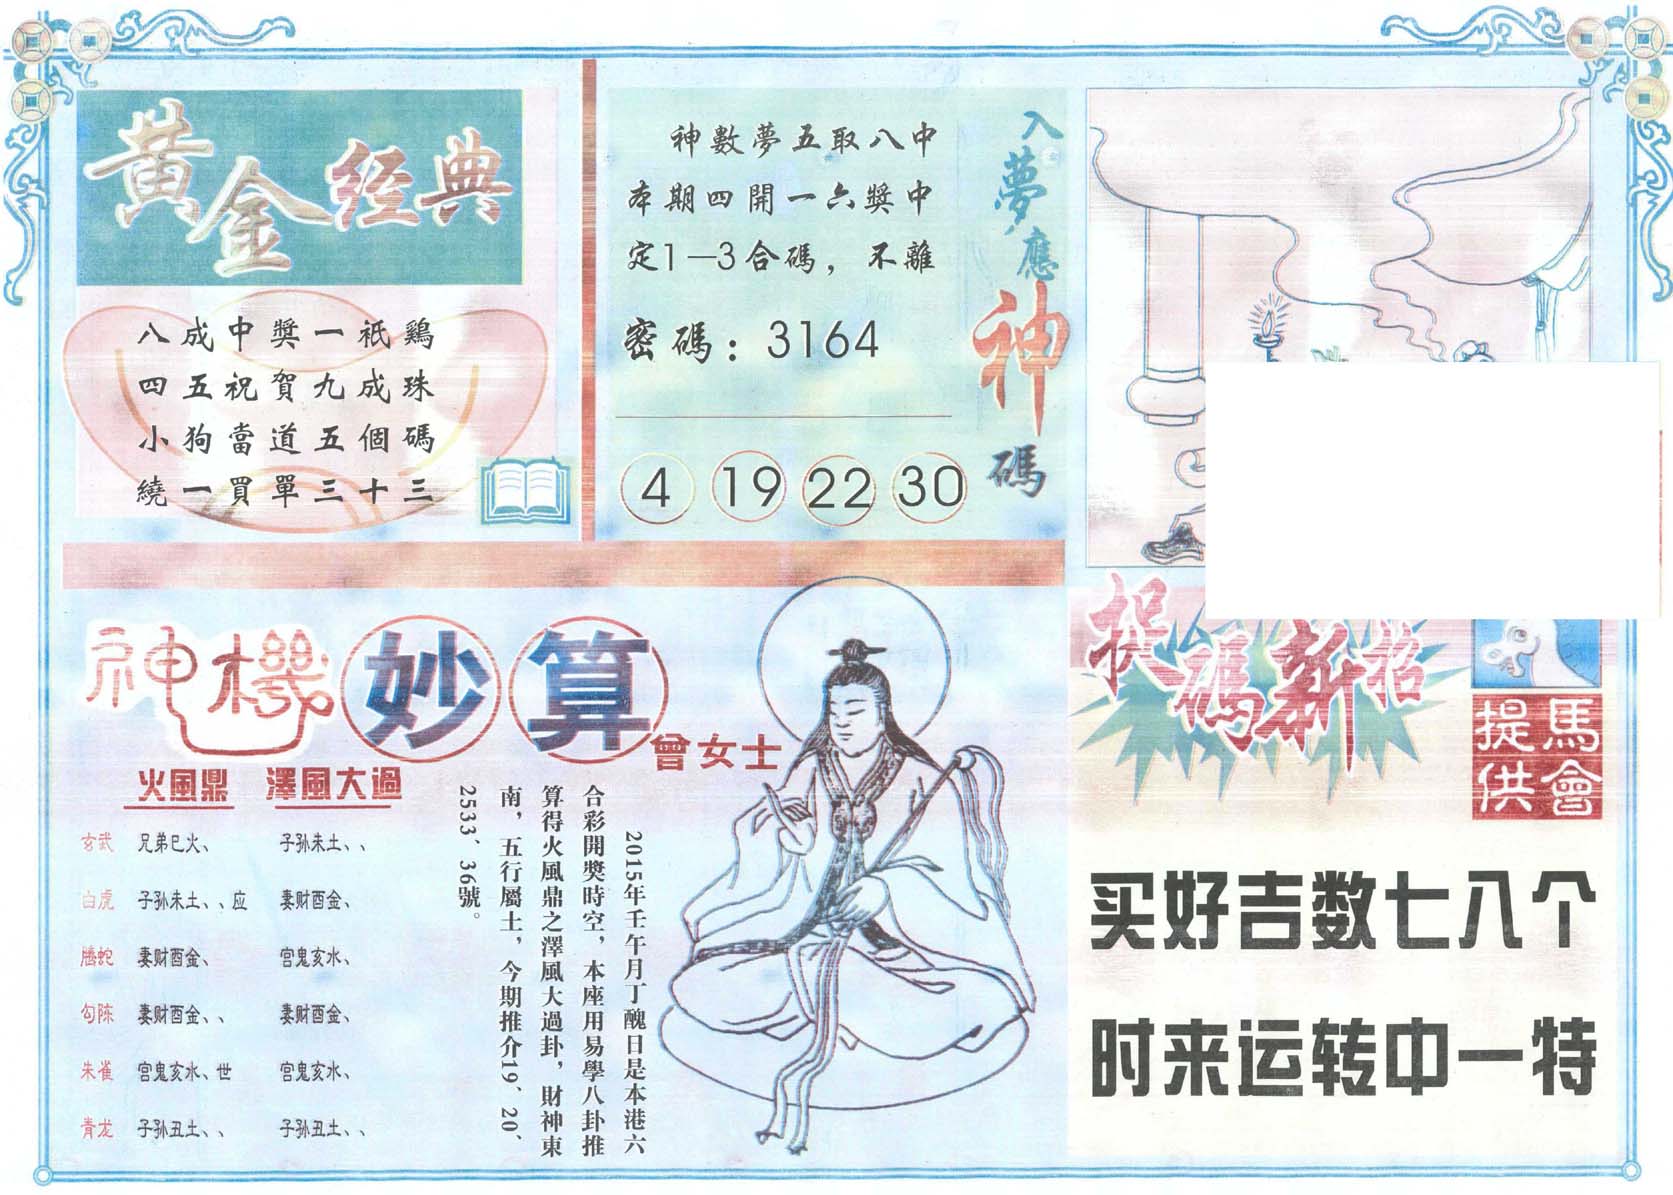 黃金经典
八成中獎一祇鷄
四五祝賀九成珠
小狗當道五個碼
繞一買單三十三
入夢應神碼
神數夢五取八中
本期四開一六獎中
定1—3合碼，不離
密碼：3164
4 19 22 30
神機妙算
曾女士
火風鼎 澤風大過
玄武 兄弟巳火、 子孙未土、、
白虎 子孙未土、、应 妻财酉金、
螣蛇 妻财酉金、 官鬼亥水、
勾陈 妻财酉金、、 妻财酉金、
朱雀 官鬼亥水、世 官鬼亥水、
青龙 子孙丑土、、 子孙丑土、、
2015年壬午月丁醜日是本港六
合彩開獎時空，本座用易學八卦推
算得火風鼎之澤風大過卦，財神東
南，五行屬土，今期推介19、20、
2533、36號。
捉碼新招
馬會提供
买好吉数七八个
时来运转中一特